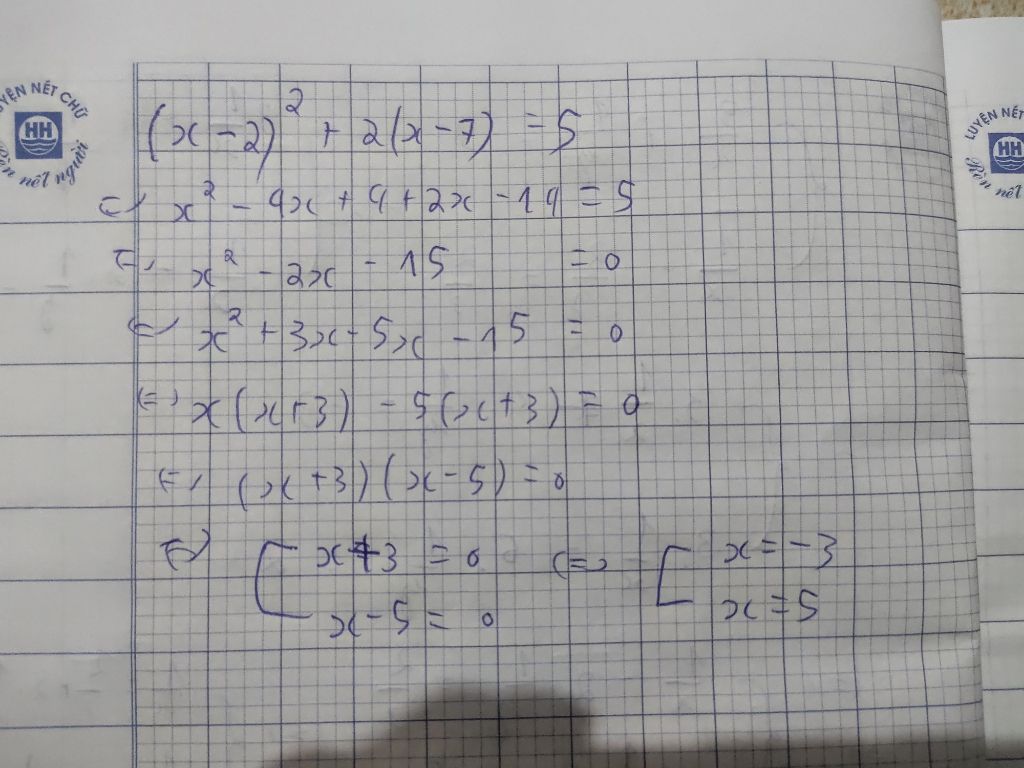 LUYỆN NÉT CHỮ
HH
Rèn nết người
(x - 2)² + 2(x - 7) = 5
<=> x² - 4x + 4 + 2x - 14 = 5
<=> x² - 2x - 15 = 0
<=> x² + 3x - 5x - 15 = 0
<=> x(x+3) - 5(x+3) = 0
<=> (x+3)(x-5) = 0
<=> [ x+3 = 0 <=> [ x = -3
x - 5 = 0 x = 5
LUYỆN NÉT CHỮ
HH
Rèn nết